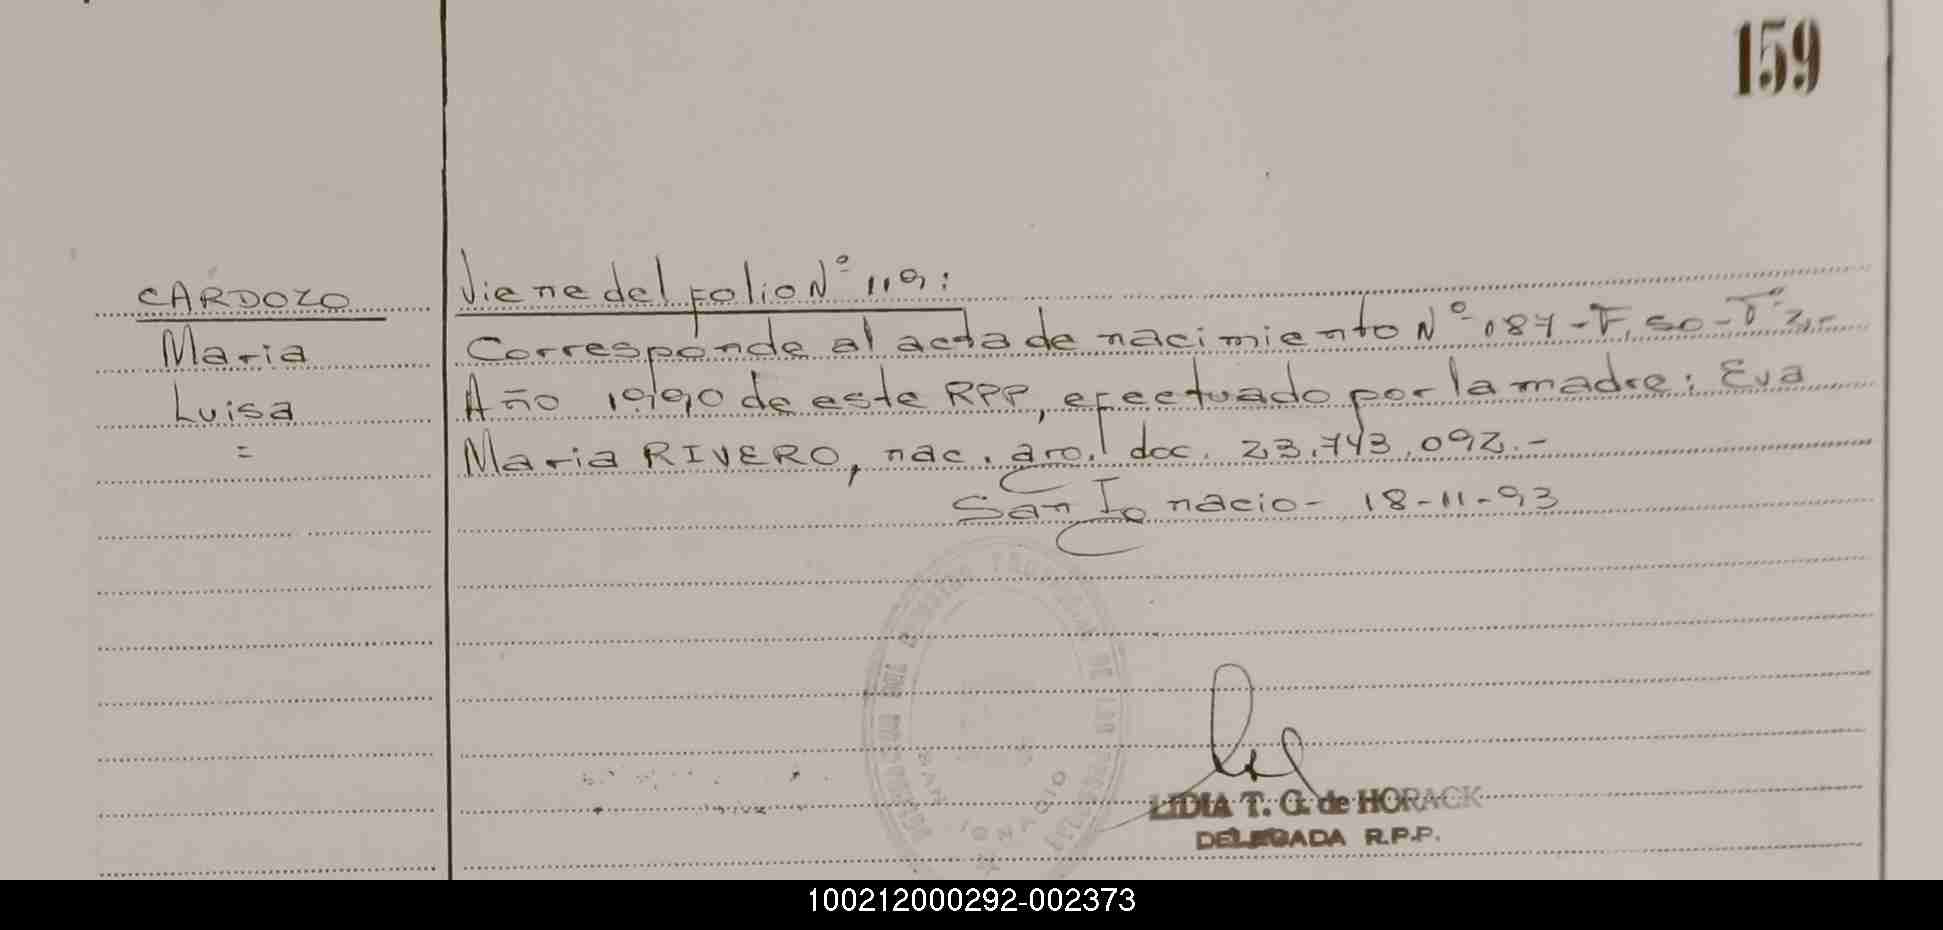 159
CARDOZO
Maria
Luisa
=
Viene del folio Nº 119:
Corresponde al acta de nacimiento Nº 087 - F. 50 - Tº 2.-
Año 1990 de este RPP, efectuado por la madre: Eva
Maria RIVERO, nac. arg. doc. 23.743.092.-
San Ignacio - 18-11-93
SAN IGNACIO
LIDIA T. G. de HORACK
DELEGADA R.P.P.
100212000292-002373